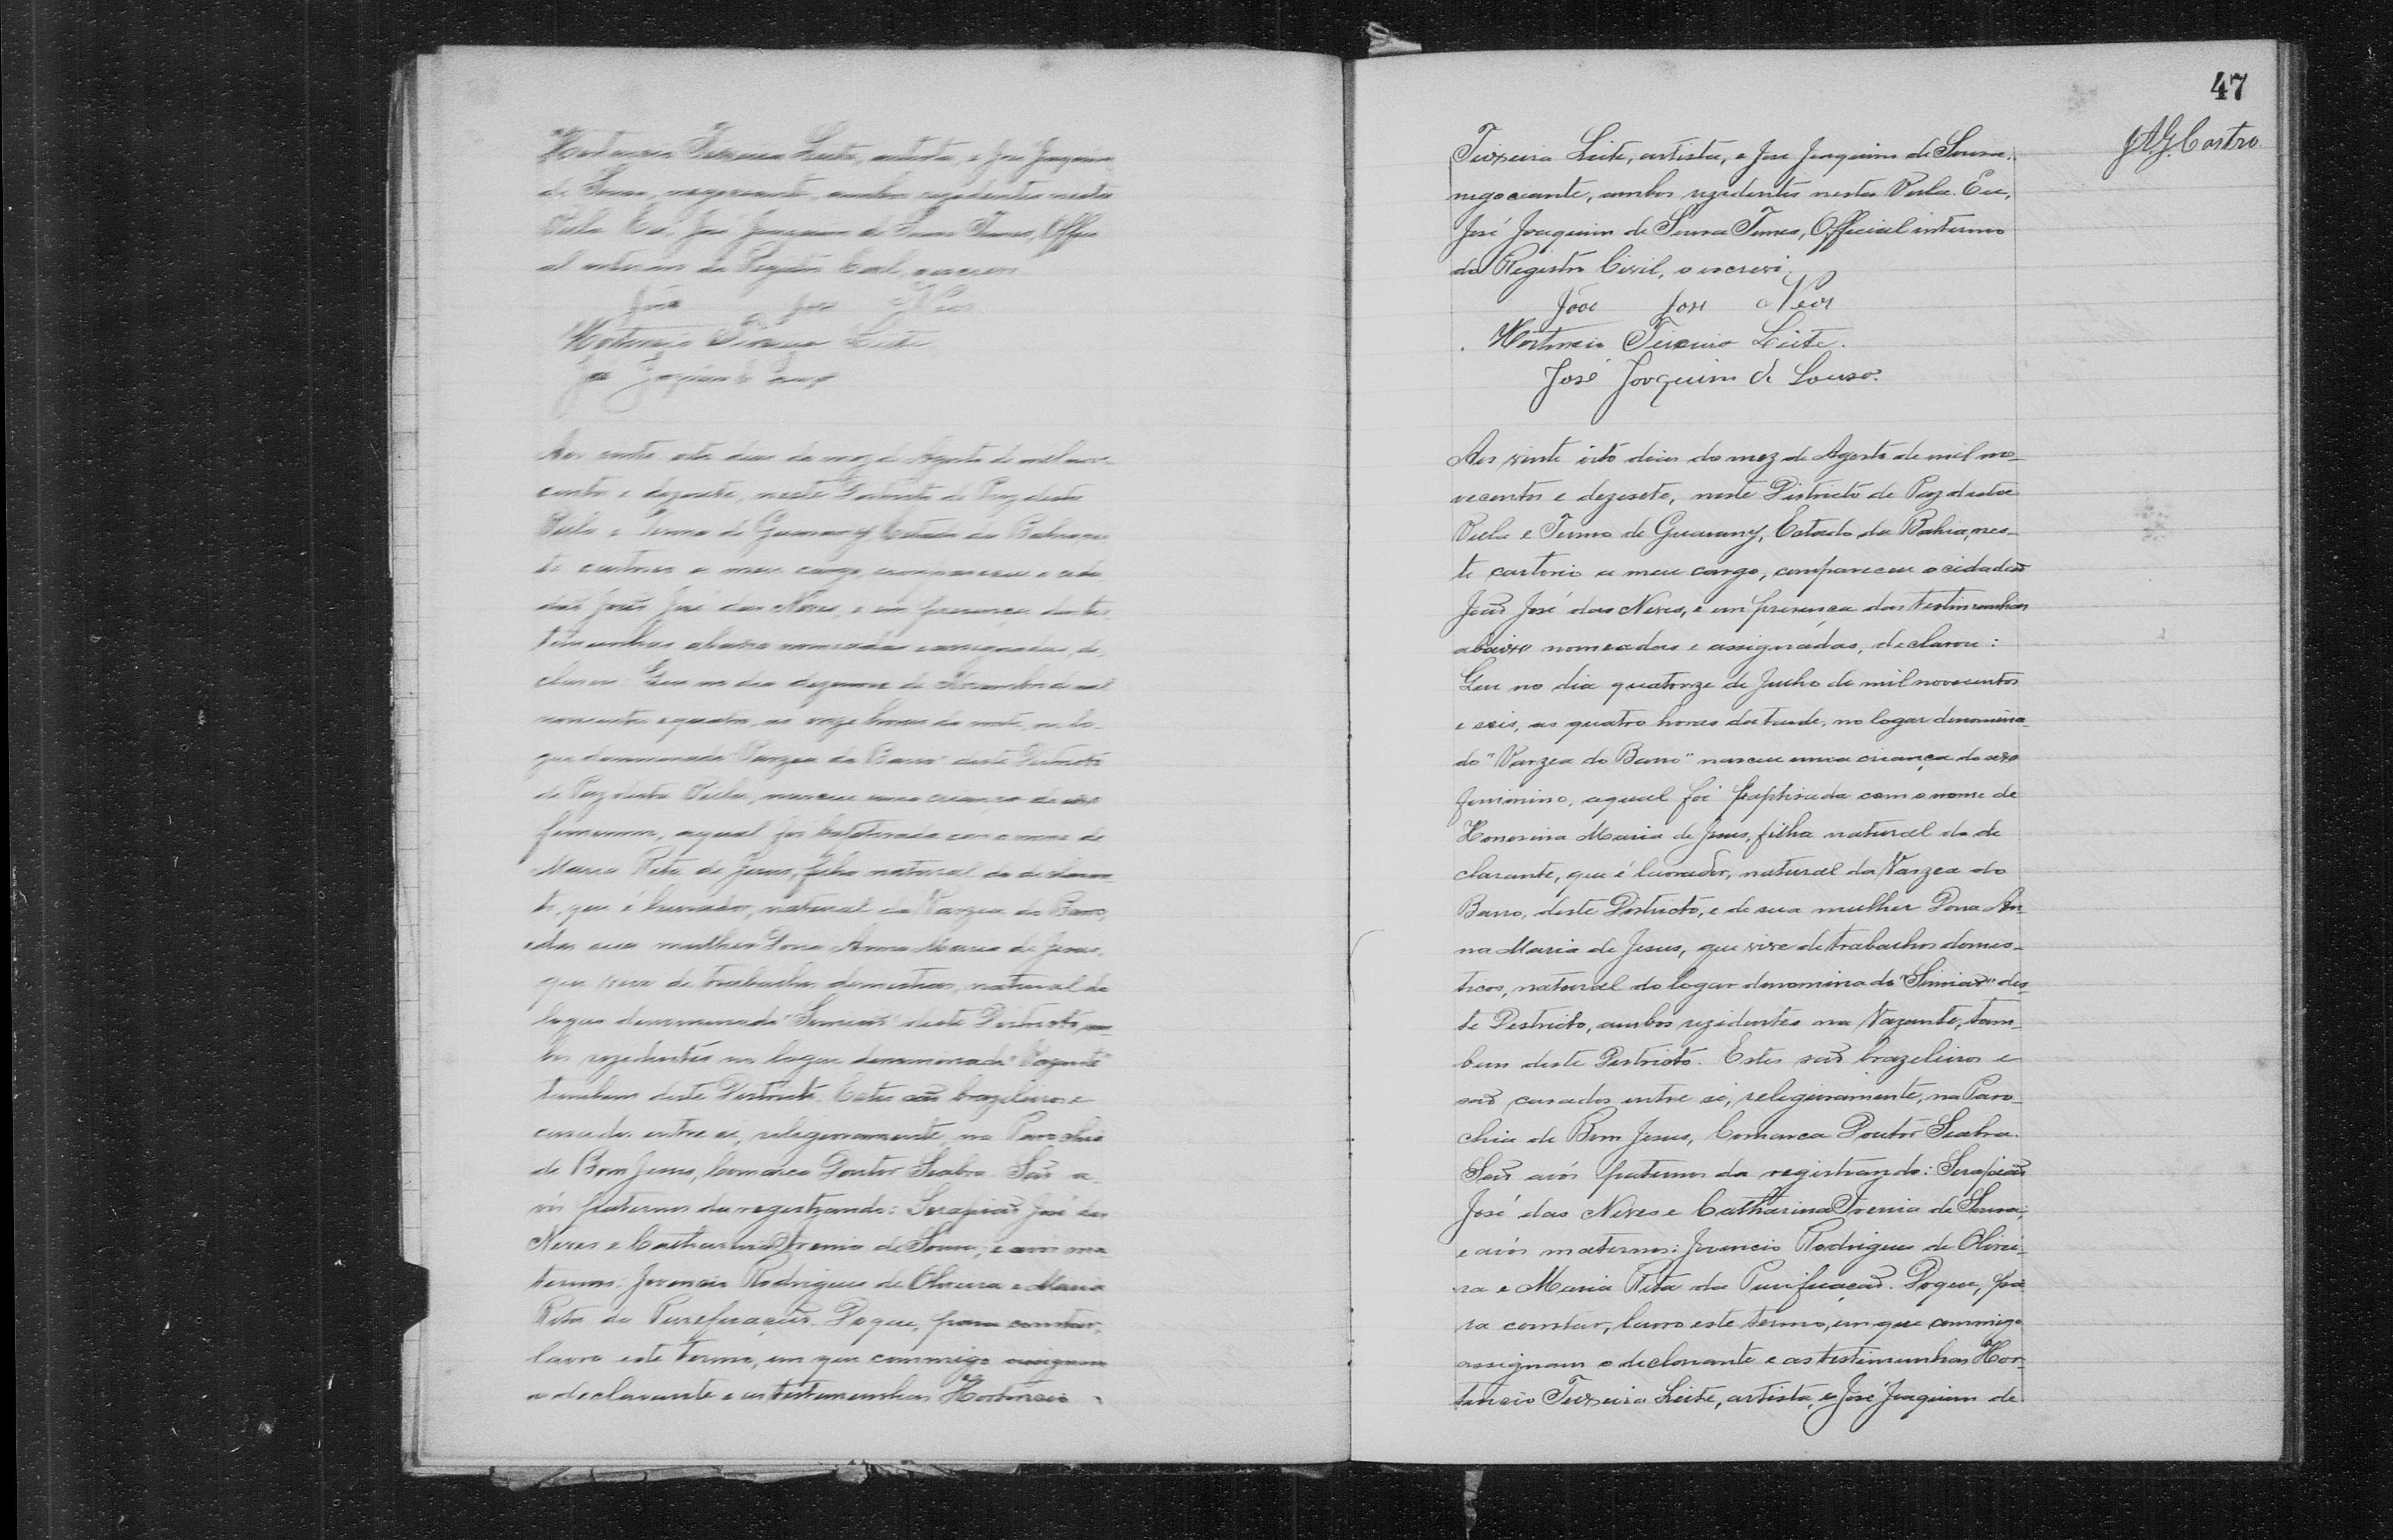 Hortencio Teixeira Leite, artista, e José Joaquim
de Sousa, negociante, ambos rezidentes nesta
Villa. Eu, José Joaquim de Sousa Offici-
al interino do Registro Civil, o escrevi
João José Neves
Hortencio Teixeira Leite
José Joaquim de Souza
Aos vinte oito dias do mez de Agosto de mil nove-
centos e dezesete, neste Districto de Paz desta
Villa e Termo de Guarany, Estado da Bahia, nes-
te cartorio a meu cargo, compareceu o cida-
dão João José das Neves, e em presença das tes-
timunhas abaixo nomeadas e assignadas, de-
clarou: Que no dia dezenove de de mil
novecentos e quatro, as onze horas da noite, no lo-
gar denominado "Varzea do Barro" deste Districto
de Paz desta Villa, nasceu uma criança do sexo
feminino, aqual foi baptisada com o nome de
Maria Rita de Jesus, filha natural do declaran-
te, que é lavrador, natural da Varzea do Barro,
e de sua mulher Dona Anna Maria de Jesus,
que vive de trabalhos domesticos, natural do
logar denominado "Simião" deste Districto, am-
bos rezidentes no logar denominado "Vazante"
tambem deste Districto. Estes são brazileiros e
casados entre si, religiosamente, na Parochia
de Bom Jesus, Comarca Doutor Seabra. São a-
vós paternos da registrando: Serapião José das
Neves e Catharina Irenia de Sousa; e avós ma-
ternos: Jovencio Rodrigues de Oliveira e Maria
Rita da Purificação. Do que, para constar,
lavro este termo, em que commigo assignam
o declarante e as testimunhas Hortencio
47
J.A.G. Castro
Teixeira Leite, artista, e José Joaquim de Sousa,
negociante, ambos rezidentes nesta Villa. Eu,
José Joaquim de Sousa Tunes, Official interino
do Registro Civil, o escrevi.
João José Neves
Hortencio Teixeira Leite.
José Joaquim de Souza.
Aos vinte oito dias do mez de Agosto de mil no-
vecentos e dezesete, neste Districto de Paz desta
Villa e Termo de Guarany, Estado da Bahia, nes-
te cartorio a meu cargo, compareceu o cidadão
João José das Neves, e em presença das testimunhas
abaixo nomeadas e assignadas, declarou:
Que no dia quatorze de Junho de mil novecentos
e seis, as quatro horas da tarde, no logar denomina-
do "Varzea do Barro" nasceu uma criança do sexo
feminino, aqual foi baptisada com o nome de
Honorina Maria de Jesus, filha natural do de
clarante, que é lavrador, natural da Varzea do
Barro, deste Districto, e de sua mulher Dona An-
na Maria de Jesus, que vive de trabalhos domes-
ticos, natural do logar denominado "Simião" des-
te Destricto, ambos rezidentes na Vazante, tam-
bem deste Destricto. Estes são brazeleiros e
são casados entre si, religiosamente, na Paro-
chia de Bom Jesus, Comarca Doutor Seabra.
São avós paternos da registrando: Serapião
José das Neves e Catharina Irenia de Sousa;
e avós maternos: Jovencio Rodrigues de Olivei-
ra e Maria Rita da Purificação. Do que, pa-
ra constar, lavro este termo, em que commigo
assignam o declarante e as testimunhas Hor-
tencio Teixeira Leite, artista, e José Joaquim de